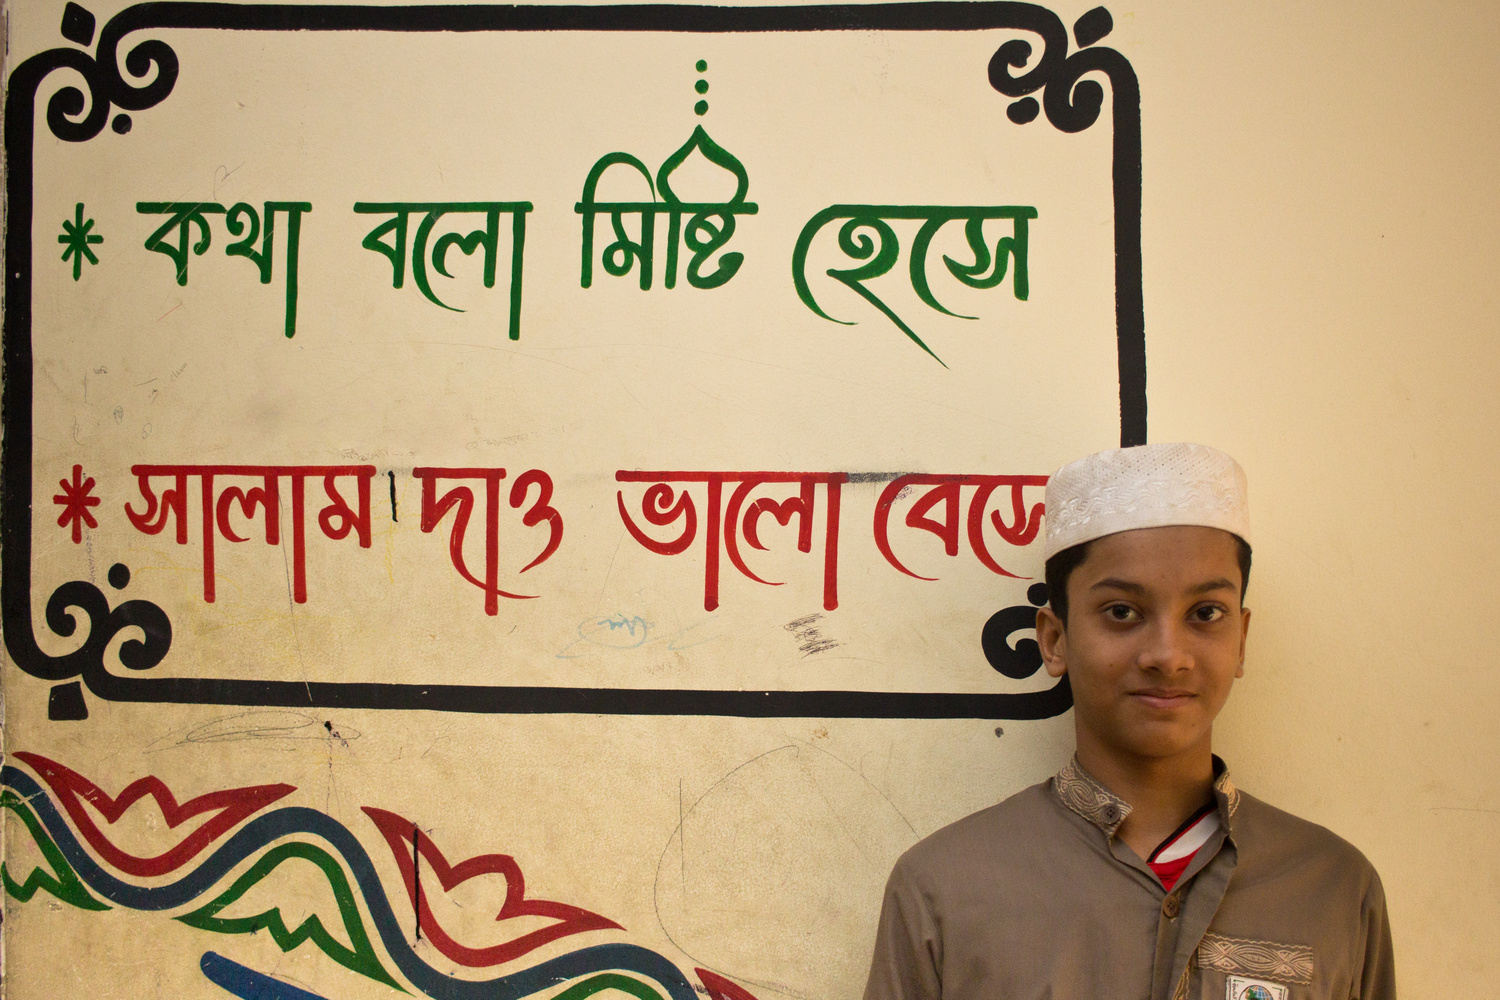 * কথা বলো মিষ্টি হেসে
* সালাম দাও ভালো বেসে